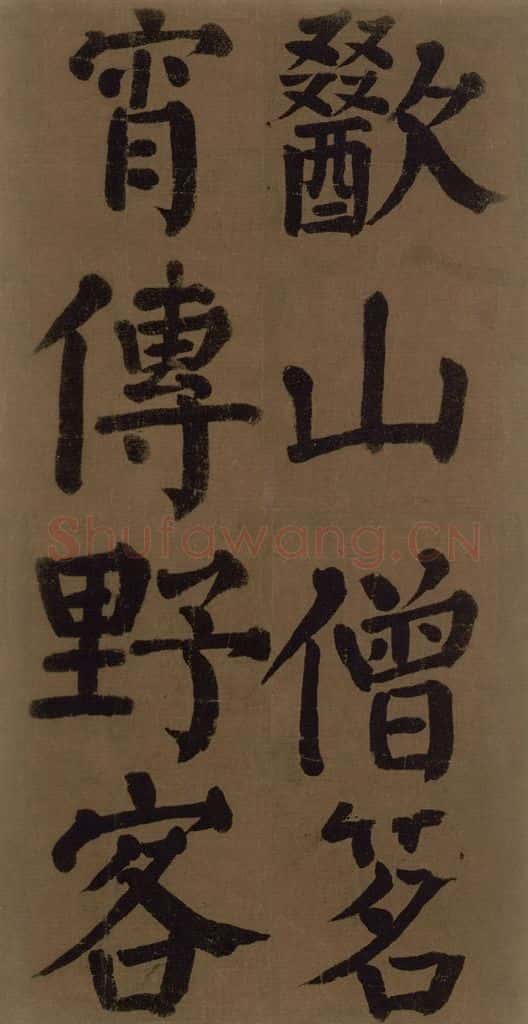 歠山僧茗
宵傳野客
Shufawang.CN